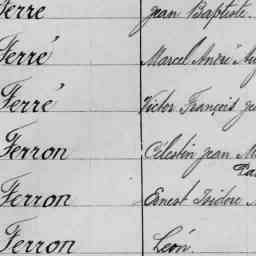 Ferre Jean Baptiste.
Ferré Marcel André
Ferré Victor François
Ferron Celestin Jean
Ferron Ernest Isidore
Ferron Léon.